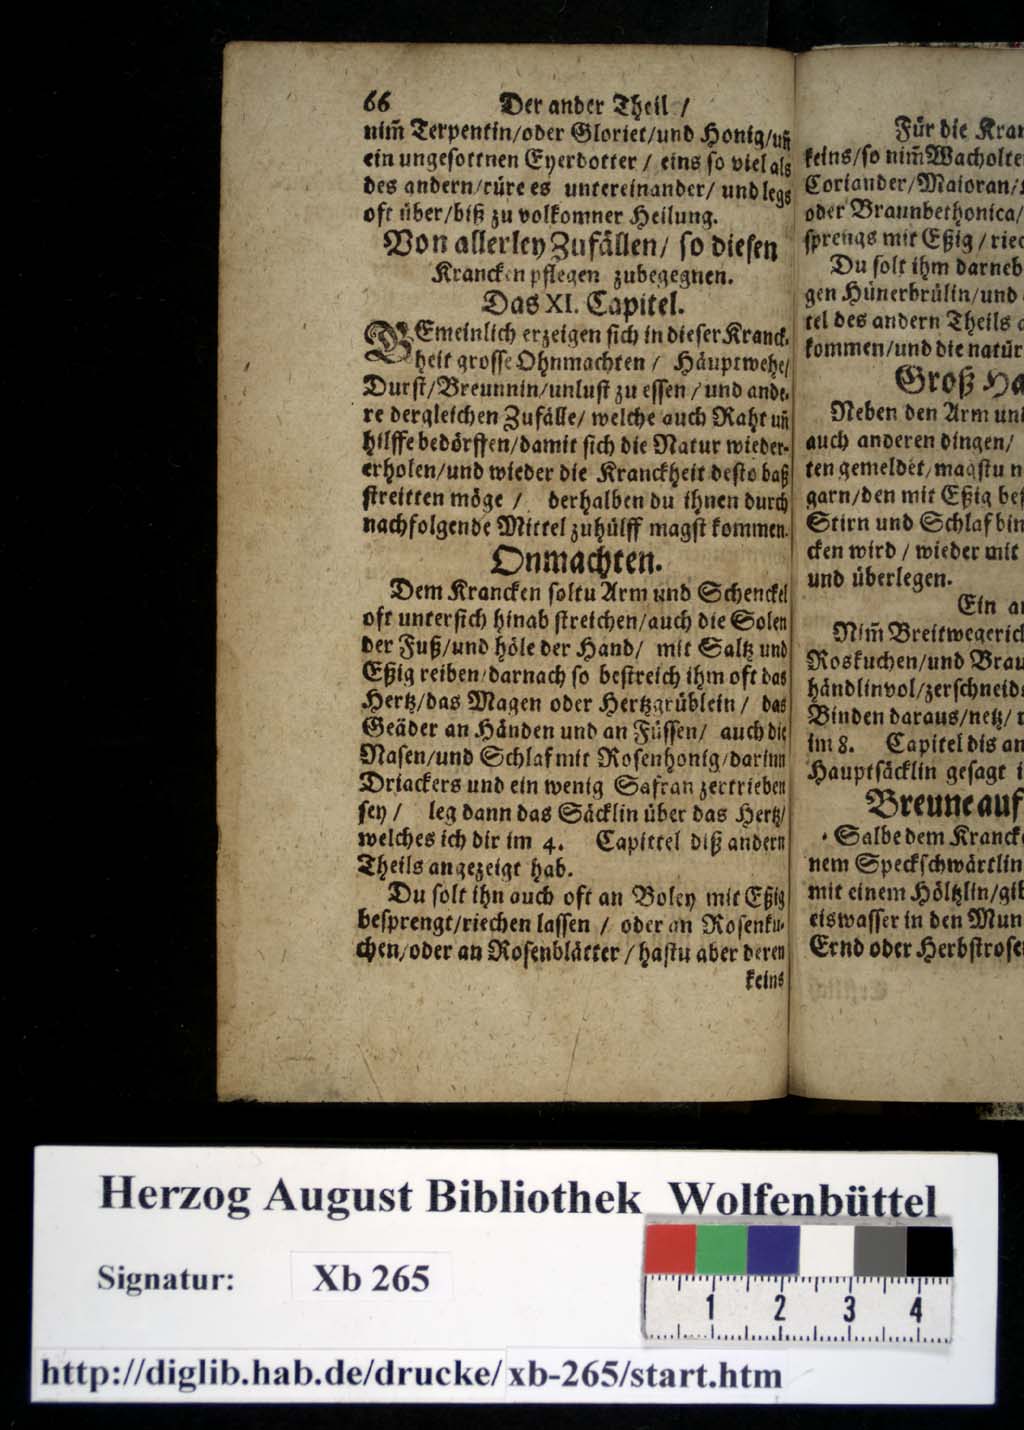 66 Der ander Theil /
nim̃ Terpentin/oder Gloriet/und Honig/uñ
ein ungesottnen Eyerdotter / eins so viel als
des andern/rüre es untereinander/ und legs
oft über/biß zu volkomner Heilung.
Von allerley Zufällen/ so diesen
Krancken pflegen zubegegnen.
Das XI. Capitel.
GEmeinlich erzeigen sich in dieser Kranck-
heit grosse Ohnmachten / Häuptwehe/
Durst/Breunnin/unlust zu essen / und ande-
re dergleichen Zufälle/ welche auch Raht uñ
hilffe bedörffen/damit sich die Natur wieder-
erholen/und wieder die Kranckheit desto baß
streitten möge / derhalben du ihnen durch
nachfolgende Mittel zuhülff magst kommen.
Onmachten.
Dem Krancken soltu Arm und Schenckel
oft untersich hinab streichen/auch die Solen
der Fuß/und höle der Hand/ mit Saltz und
Eßig reiben/darnach so bestreich ihm oft das
Hertz/das Magen oder Hertzgrüblein / das
Geäder an Händen und an Füssen/ auch die
Nasen/und Schlaf mit Rosenhonig/darinn
Driackers und ein wenig Safran zertrieben
sey / leg dann das Säcklin über das Hertz/
welches ich dir im 4. Capittel diß andern
Theils angezeigt hab.
Du solt ihn auch oft an Boley mit Eßig
besprengt/riechen lassen / oder an Rosenku-
chen/oder an Rosenblätter / hastu aber deren
keins
Für die
keins/so nim̃
Coriander/Maioran/
oder Braunbethonica/
sprengs mit Eßig /
Du solt ihm
gen Hünerbrülin/und
tel des andern Theils
kommen/und die
Groß
Neben den Arm
auch anderen dingen/
ten gemeldet/magstu
garn/den mit Eßig
Stirn und Schlaf
cken wird / wieder mit
und überlegen.
Ein
Nim̃
Roskuchen/und
händlinvol/
Binden daraus/netz/
im 8. Capitel dis
Hauptsäcklin gesagt
Breune auf
Salbe dem
nem Speckschwärtlin
mit einem Höltzlin/
eiswasser in den
Ernd oder
Herzog August Bibliothek Wolfenbüttel
Signatur: Xb 265
1 2 3 4
http://diglib.hab.de/drucke/xb-265/start.htm